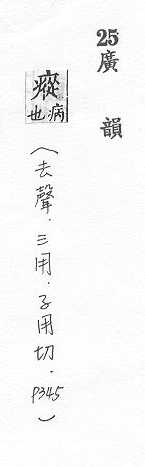 25廣韻
瘲病也
（去聲．三用．子用切．P345）